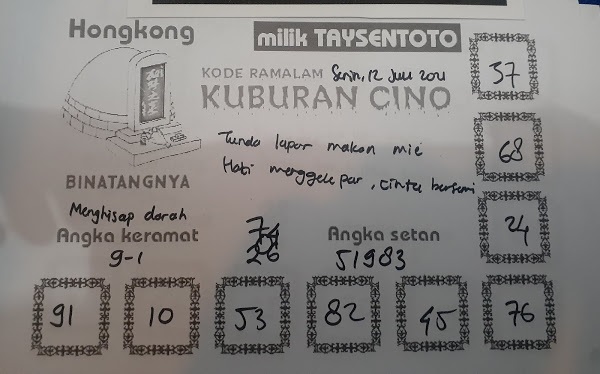 Hongkong
milik TAYSENTOTO
KODE RAMALAM Senin, 12 Juli 2021
KUBURAN CINO
37
Tunda lapar makan mie
Hati menggelepar, cinta bersemi
68
BINATANGNYA
Menghisap darah
Angka keramat
9-1
74
26
Angka setan
51983
24
91
10
53
82
45
76